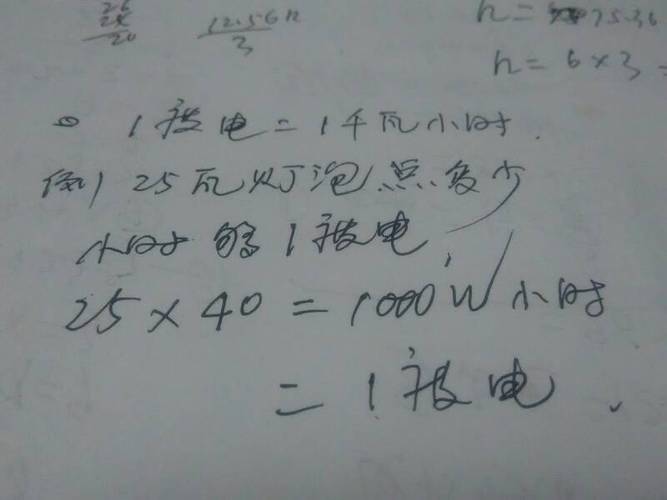 12.56h
3
h= 75.36
h= 6×3
1被电=1千瓦小时.
例) 25瓦灯泡点多少
小时够1被电
25×40=1000W小时
=1被电.